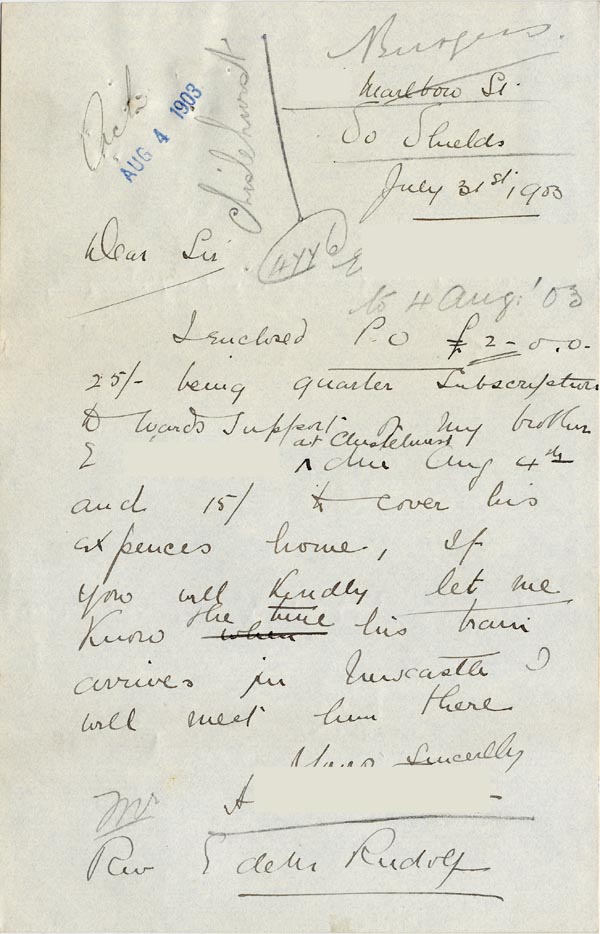 Burgess.
Marlboro St.
So Shields
July 31st, 1903
Ack
AUG 4 1903
Chislehurst
Dear Sir
4776
E
4 Aug: '03
I Enclosed P.O £2-0.0.
25/- being quarter Subscription
to wards Support of my brother
E at Chislehurst due Aug 4th
and 15/ to cover his
expences home, If
you will Kindly let me
Know when the time his train
arrives in Newcastle I
will meet him there
Yours Sincerely
Mr A
Rev E de M Rudolf